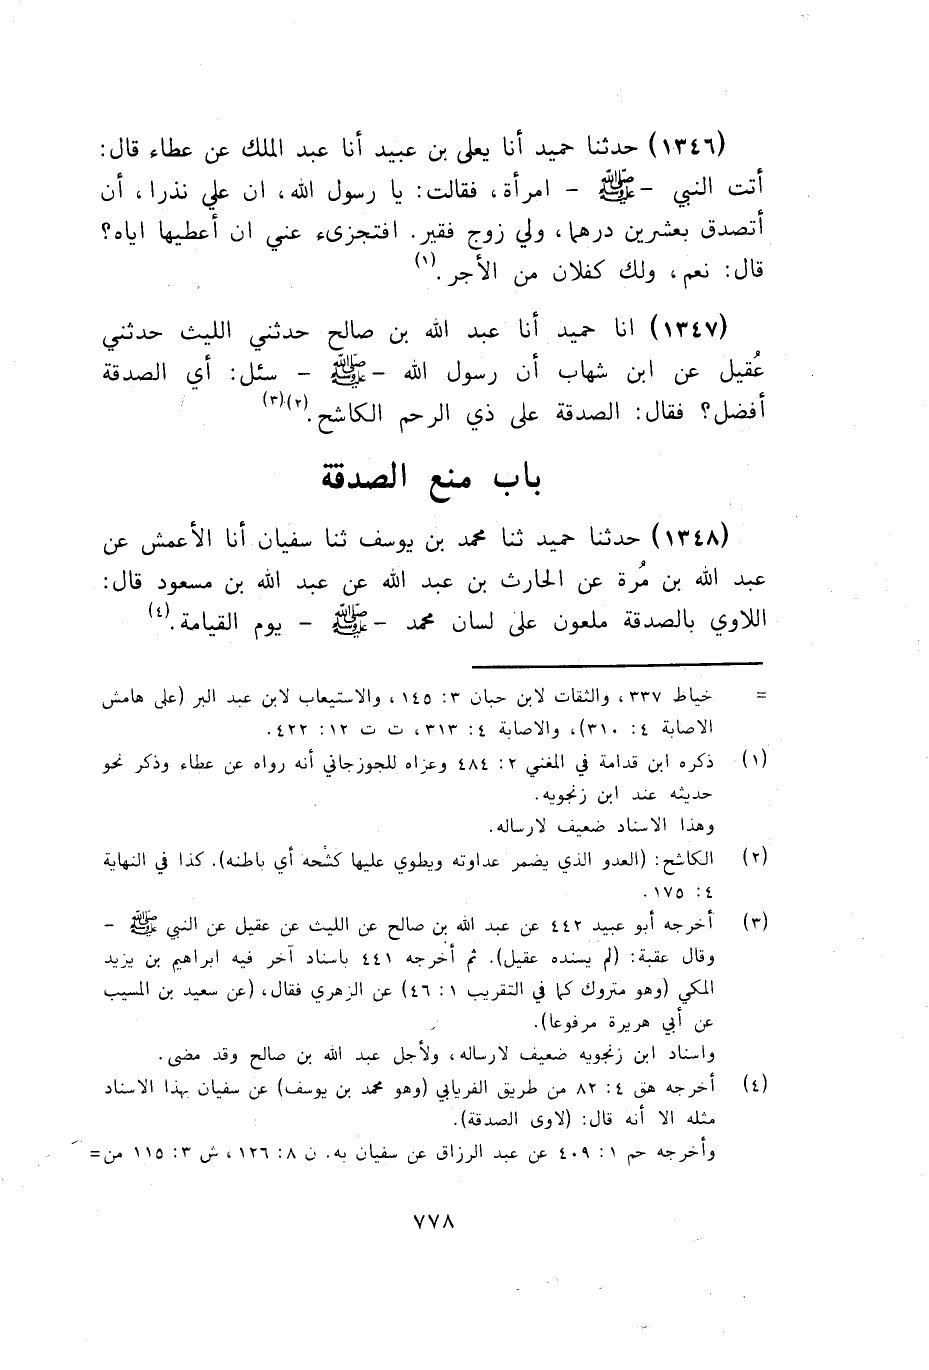 (١٣٤٦) حدثنا حميد أنا يعلى بن عبيد أنا عبد الملك عن عطاء قال:
أتت النبي -ﷺ - امرأة، فقالت: يا رسول الله، ان علي نذرا، أن
أتصدق بعشرين درهما، ولي زوج فقير. افتجزىء عني ان أعطيها اياه؟
قال: نعم، ولك كفلان من الأجر.(١)
(١٣٤٧) انا حميد أنا عبد الله بن صالح حدثني الليث حدثني
عُقيل عن ابن شهاب أن رسول الله -ﷺ - سئل: أي الصدقة
أفضل؟ فقال: الصدقة على ذي الرحم الكاشح.(٢)(٣)
باب منع الصدقة
(١٣٤٨) حدثنا حميد ثنا محمد بن يوسف ثنا سفيان أنا الأعمش عن
عبد الله بن مُرة عن الحارث بن عبد الله عن عبد الله بن مسعود قال:
اللاوي بالصدقة ملعون على لسان محمد -ﷺ - يوم القيامة.(٤)
= خياط ٣٣٧، والثقات لابن حبان ٣: ١٤٥، والاستيعاب لابن عبد البر (على هامش
الاصابة ٤: ٣١٠)، والاصابة ٤: ٣١٣، ت ت ١٢: ٤٢٢.
(١) ذكره ابن قدامة في المغني ٢: ٤٨٤ وعزاه للجوزجاني أنه رواه عن عطاء وذكر نحو
حديثه عند ابن زنجويه.
وهذا الاسناد ضعيف لارساله.
(٢) الكاشح: (العدو الذي يضمر عداوته ويطوي عليها كشْحه أي باطنه). كذا في النهاية
٤: ١٧٥.
(٣) أخرجه أبو عبيد ٤٤٢ عن عبد الله بن صالح عن الليث عن عقيل عن النبي ﷺ -
وقال عقبة: (لم يسنده عقيل). ثم أخرجه ٤٤١ باسناد آخر فيه ابراهيم بن يزيد
المكي (وهو متروك كما في التقريب ١: ٤٦) عن الزهري فقال، (عن سعيد بن المسيب
عن أبي هريرة مرفوعا).
واسناد ابن زنجويه ضعيف لارساله، ولأجل عبد الله بن صالح وقد مضى.
(٤) أخرجه هق ٤: ٨٢ من طريق الفريابي (وهو محمد بن يوسف) عن سفيان بهذا الاسناد
مثله الا أنه قال: (لاوى الصدقة).
وأخرجه حم ١: ٤٠٩ عن عبد الرزاق عن سفيان به. ن ٨: ١٢٦، ش ٣: ١١٥ من=
٧٧٨